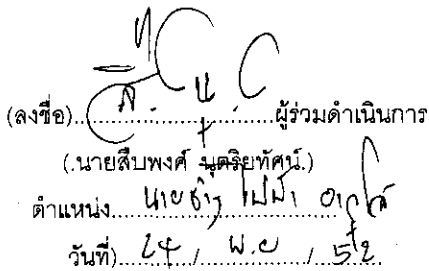 (ลงชื่อ)....................ผู้ร่วมดำเนินการ
(.นายสืบพงศ์ บุตริยทัศน์.)
ตำแหน่ง....นายช่าง ไฟฟ้า อาวุโส
วันที่)...24../...พ.ย.../...52...